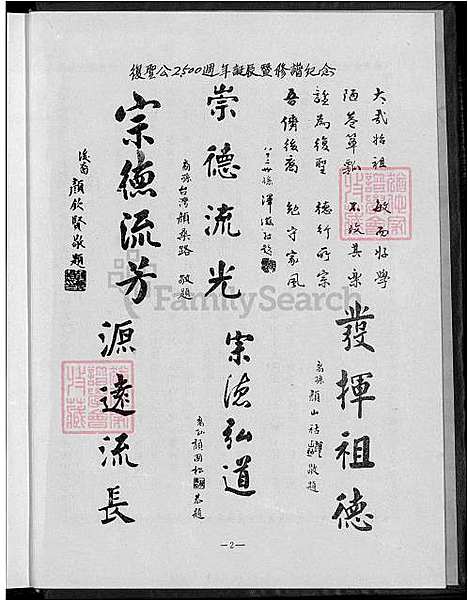 復聖公2500週年誕辰暨修譜紀念
大哉始祖 敏而好學
陋巷簞瓢 不改其樂
謚為復聖 德行所宗
吾儕後裔 紀守家風
發揮祖德
裔孫 顏山祜 敬題
崇德流光
裔孫台灣顏桑路 敬題
宗德弘道
宗德流芳
後裔 顏欽賢敬題
源遠流長
FamilySearch
—2—